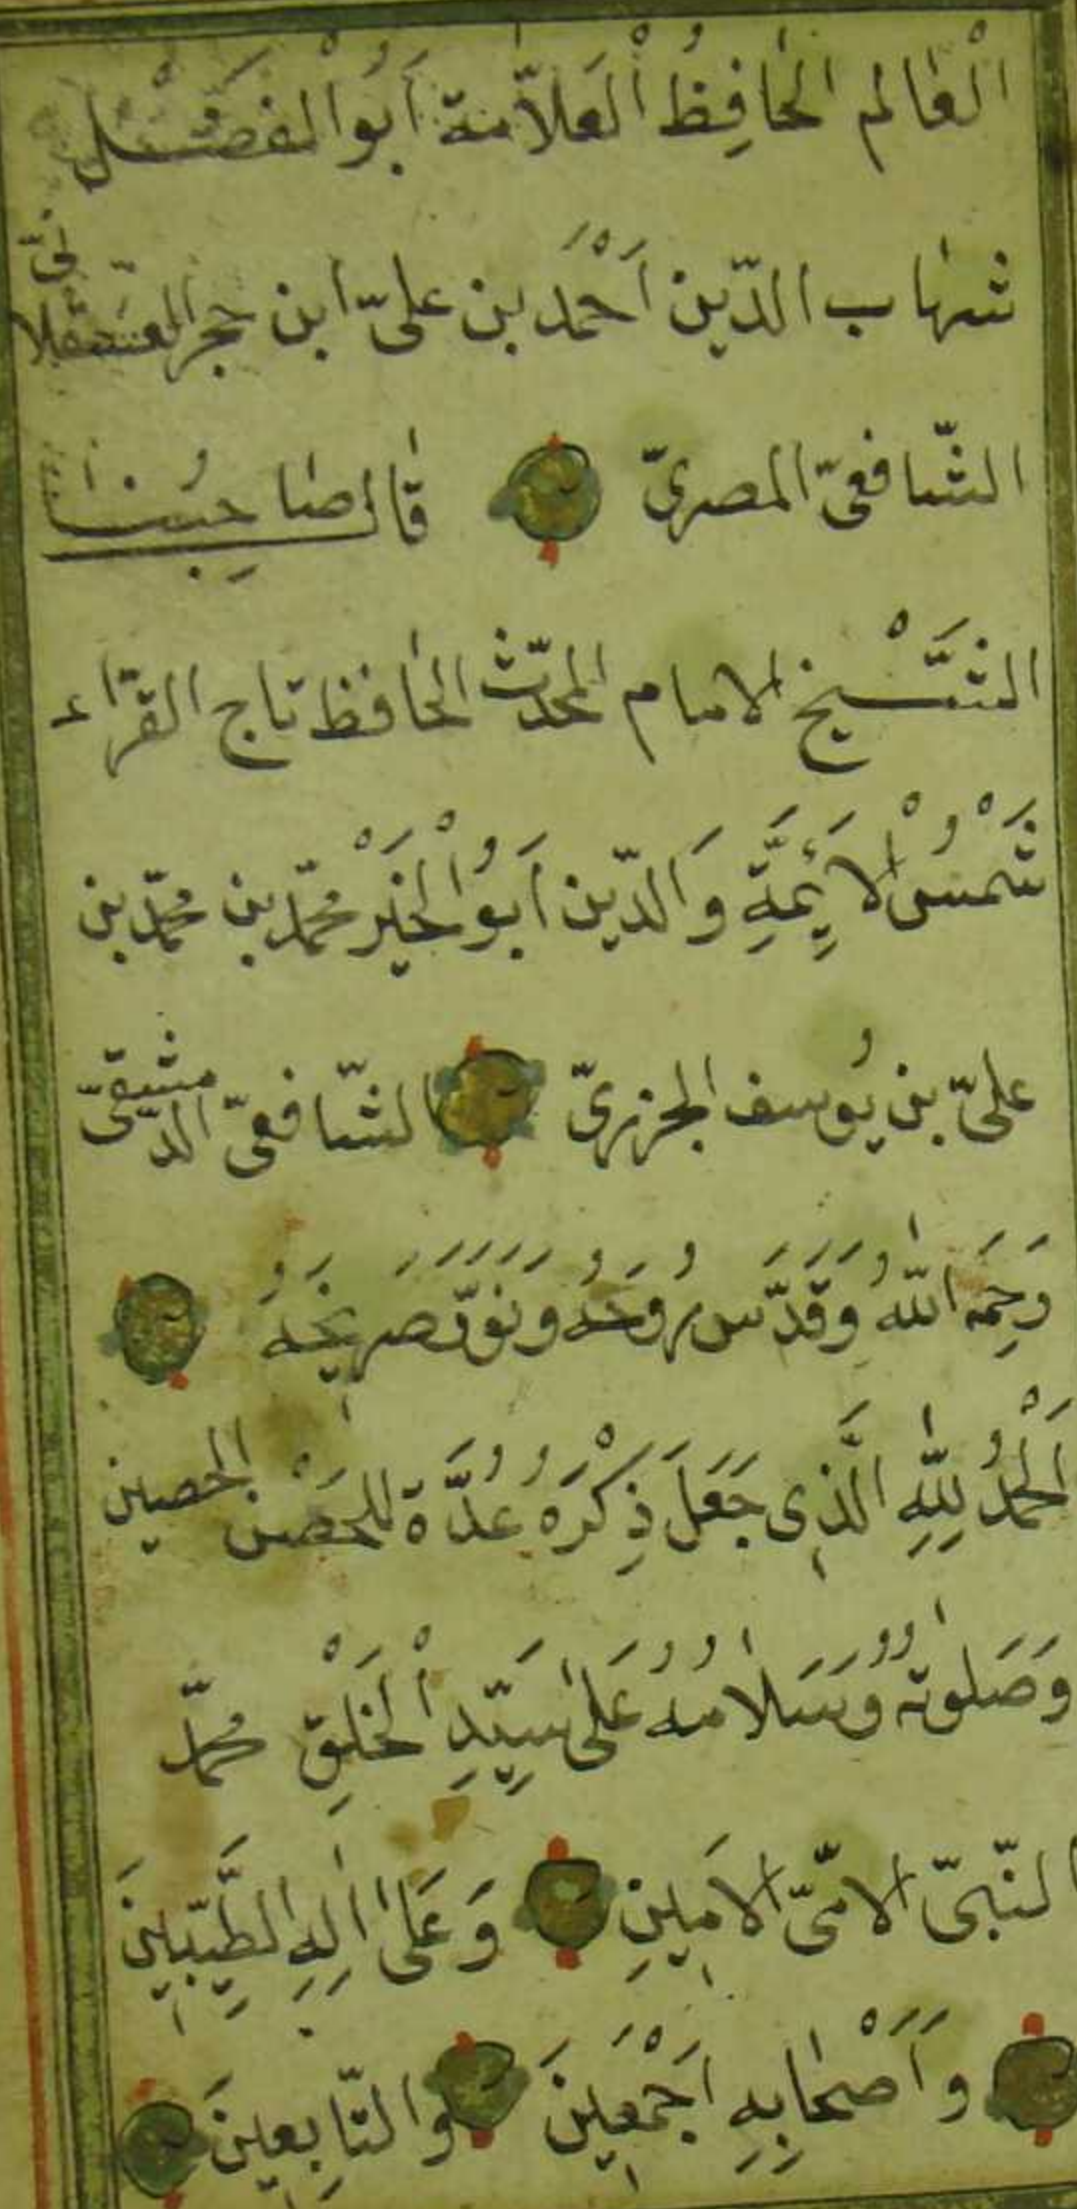 الْعَالِم الحَافِظُ الْعَلاّمَة اَبُوالْفَضْل
شهاب الدّين اَحْمَد بن علىّ ابن حجر العسقلانىّ
الشّافعىّ المصرىّ قال صَاحِبُنَا
الشَّيْخ الامام المحدّث الحافظ تاج القرّاء
شَمْسُ الْاَئِمَّةِ وَالدّين اَبُو الْخَيْر محمّد بن محمّد بن
علىّ بن يُوسف الجزرىّ الشّافعىّ الدّمشقىّ
رَحِمَهُ اللّٰهُ وَقَدَّسَ رُوحَهُ وَنَوَّرَ ضَرِيحَهُ
اَلْحَمْدُ لِلّٰهِ الَّذِى جَعَلَ ذِكْرَهُ عُدَّةً للحصن الحصين
وَصَلٰوتُهُ وَسَلَامُهُ عَلٰى سَيِّدِ الْخَلْقِ محمّد
النّبىّ الامّىّ الامِينِ وَعَلٰى اٰلِهِ الطَّيِّبِينَ
وَاَصْحَابِهِ اَجْمَعِينَ وَالتّابِعِينَ